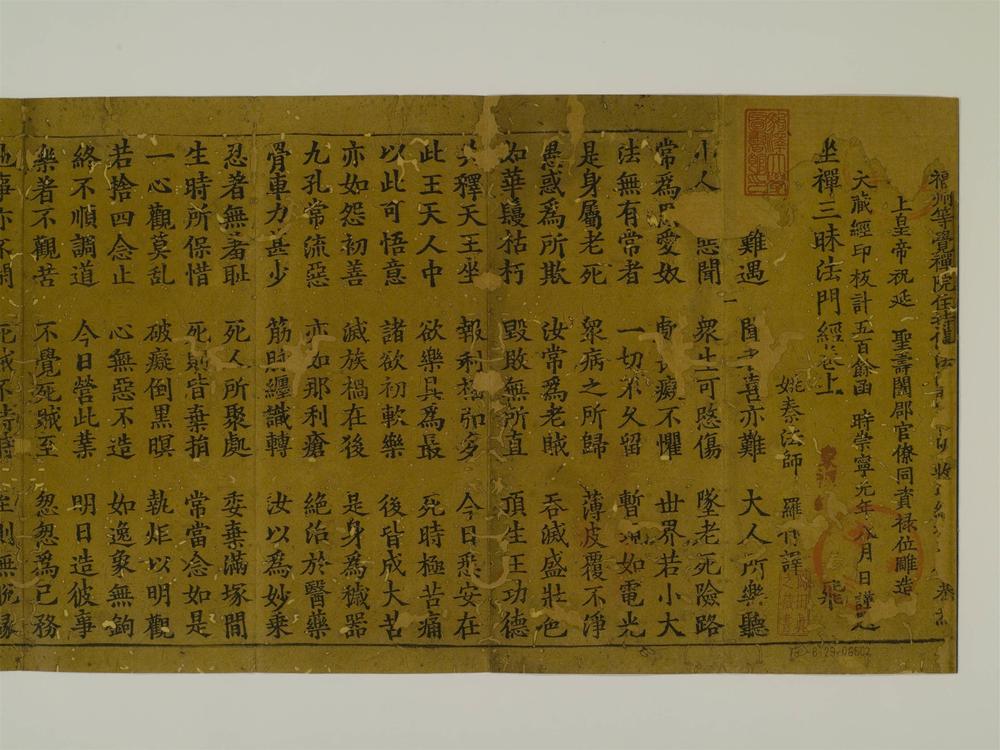 福州等覺禪院住持
上皇帝祝延　聖壽闔郡官僚同資祿位雕造
大藏經印板計五百餘函　時崇寧元年八月日謹題
坐禪三昧法門經卷上
姚秦法師　羅什譯
難遇　聞　喜亦難　大人所樂聽
小人　惡聞　眾生可愍傷　墜老死險路
常為恩愛奴　癡不懼　世界若小大
法無有常者　一切不久留　暫　如電光
是身屬老死　眾病之所歸　薄皮覆不淨
愚惑為所欺　汝常為老賊　吞滅盛壯色
如華鬘枯朽　毀敗無所直　頂生王功德
共釋天王坐　報利　多　今日悉安在
此王天人中　欲樂具為最　死時極苦痛
以此可悟意　諸欲初軟樂　後皆成大苦
亦如怨初善　滅族禍在後　是身為穢器
九孔常流惡　亦如那利瘡　絕治於醫藥
骨車力甚少　筋脈纏識轉　汝以為妙乘
忍著無羞恥　死人所聚處　委棄滿塚間
生時所保惜　死則皆棄捐　常當念如是
一心觀莫亂　破癡倒黑暝　執炬以明觀
若捨四念止　心無惡不造　如逸象無鉤
終不順調道　今日營此業　明日造彼事
樂著不觀苦　不覺死賊至　怱怱為己務
他事亦不閑　死賊不待時　至則無脫緣
75-8-29-08602